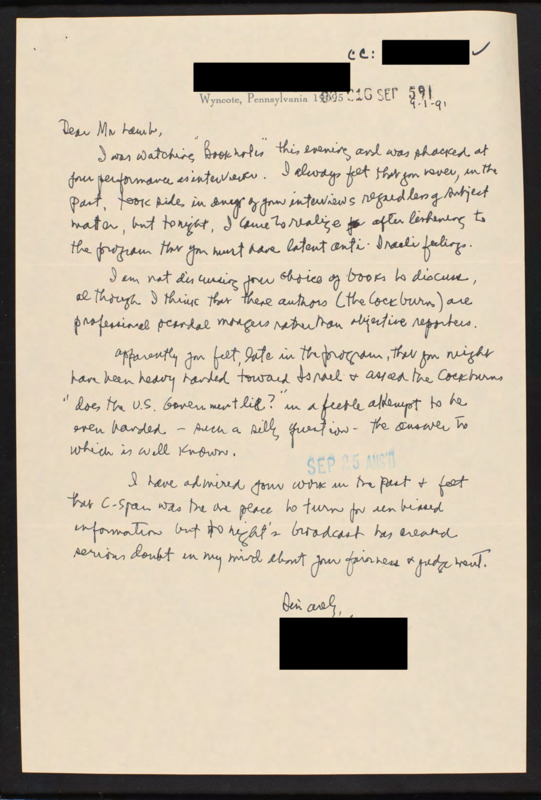 cc:
Wyncote, Pennsylvania 19095
16 SEP 591
9-1-91
Dear Mr Lamb,
I was watching "Booknotes" this evening and was shocked at
your performance as interviewer. I always felt that you never, in the
past, took sides in any of your interviews regardless of subject
matter, but tonight, I came to realize after listening to
the program that you must have latent anti-Israeli feelings.
I am not discussing your choice of books to discuss,
although I think that these authors (the Cockburns) are
professional scandal mongers rather than objective reporters.
Apparently you felt, late in the program, that you might
have been heavy handed toward Israel & asked the Cockburns
"does the U.S. Government lie?" in a feeble attempt to be
even handed - such a silly question - the answer to
which is well known.
SEP 25 AUG 11
I have admired your work in the past & felt
that C-Span was the one place to turn for unbiased
information but tonight's broadcast has created
serious doubt in my mind about your fairness & judgement.
Sincerely,